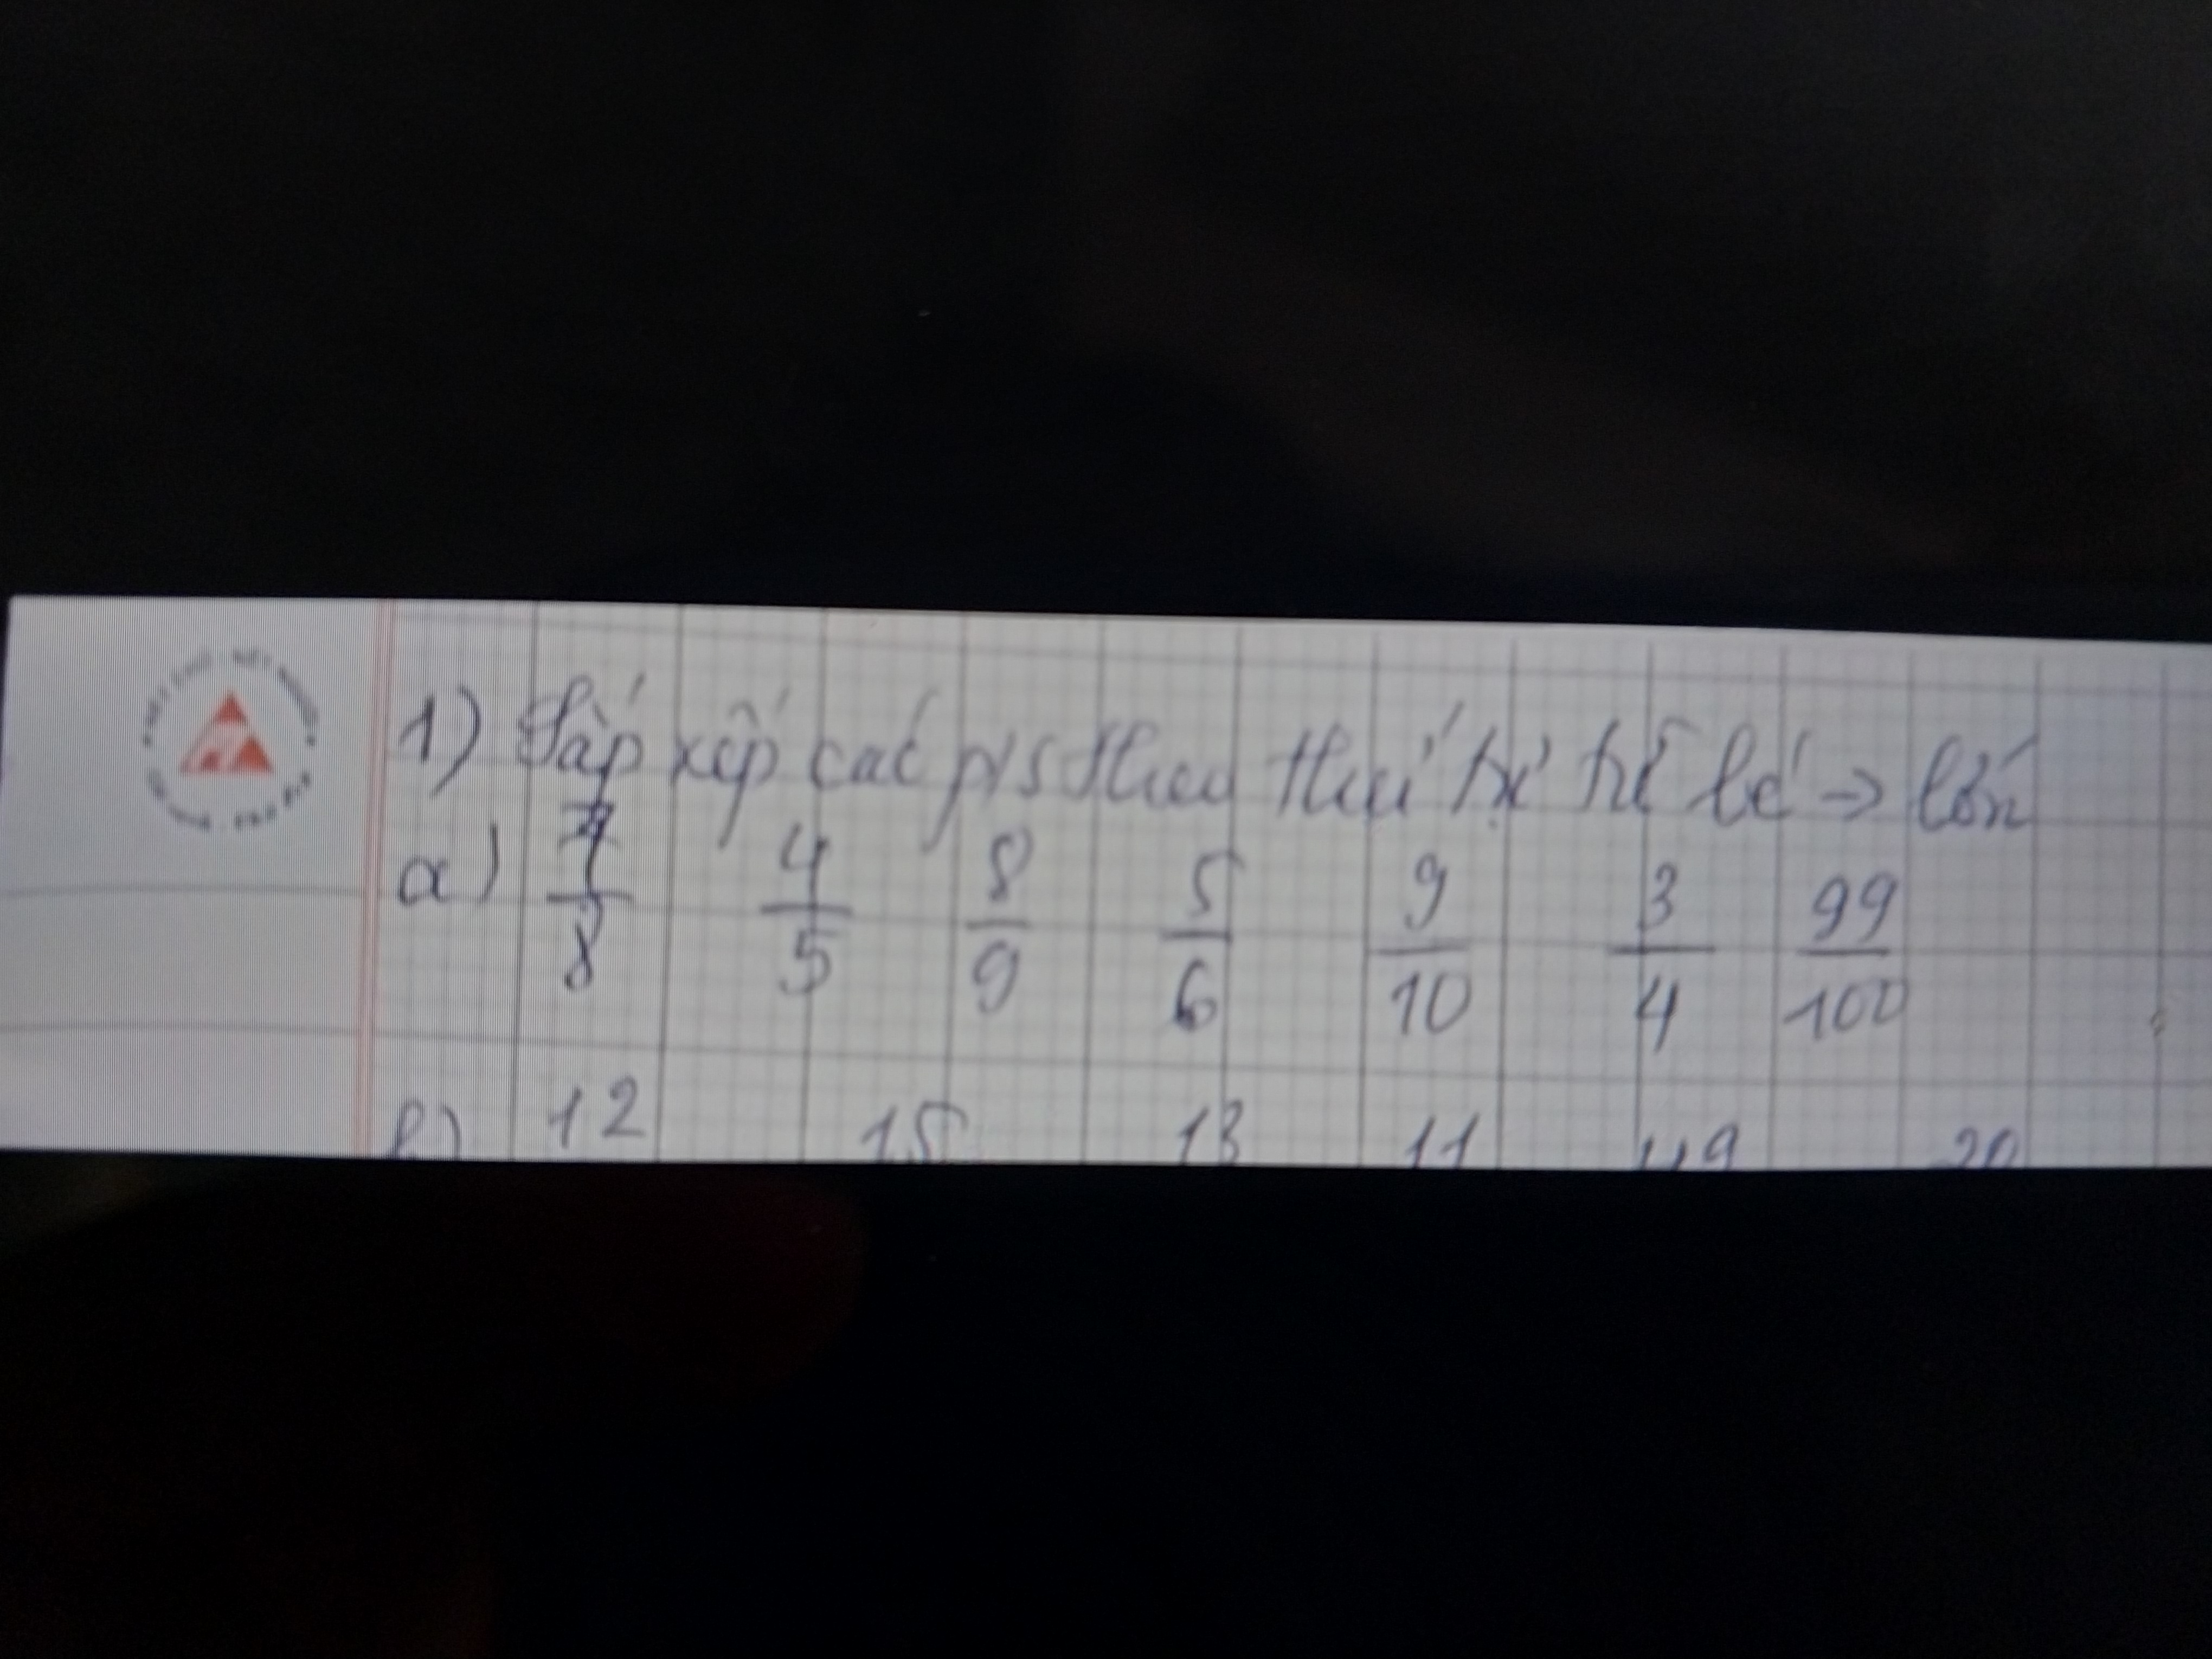 1) Sắp xếp các p/s theo thứ tự từ bé → lớn
a) 7/8 4/5 8/9 5/6 9/10 3/4 99/100
b) 12 15 13 11 49 20